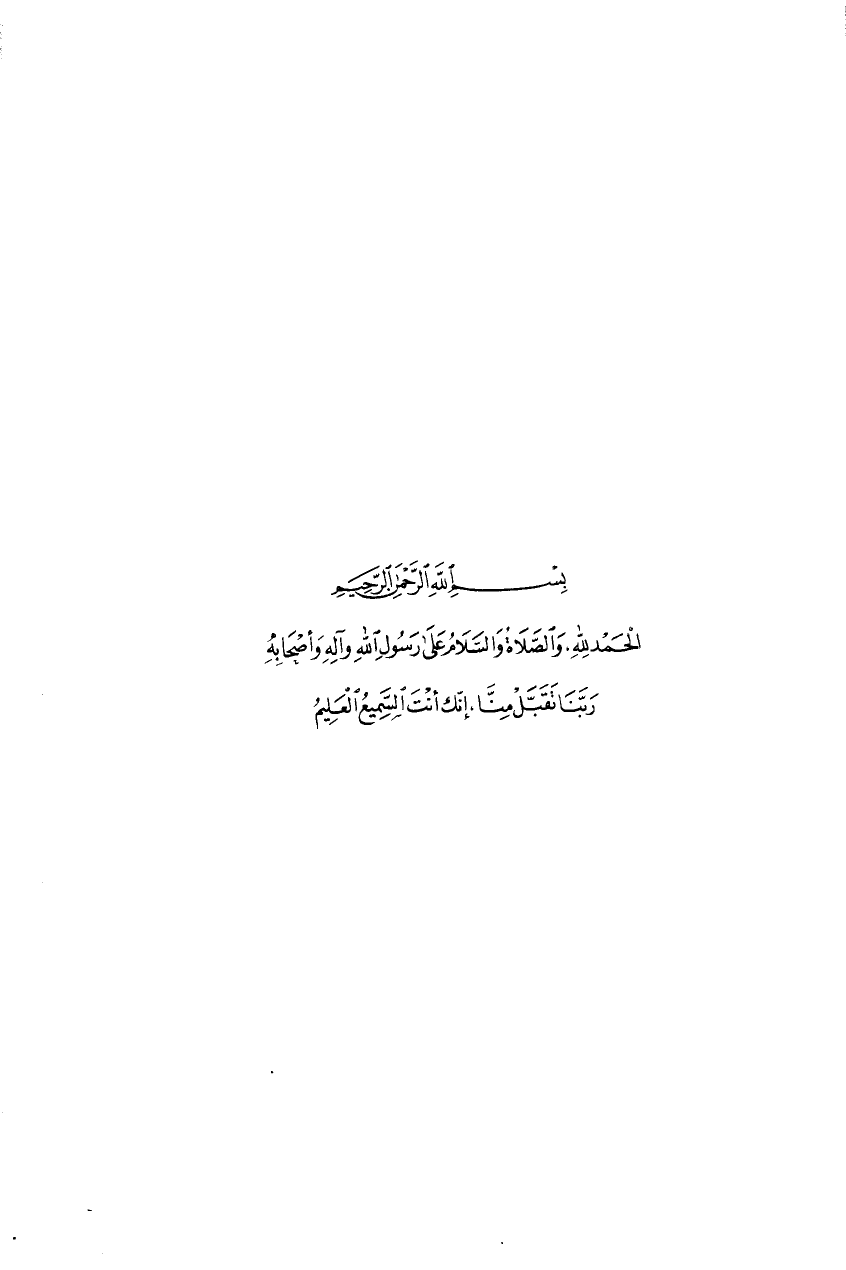 بِسْمِ ٱللَّهِ ٱلرَّحْمَٰنِ ٱلرَّحِيمِ
الْحَمَدُ لِلهِ، وَٱلصَّلَاةُ وَالسَّلَامُ عَلَىٰ رَسُولِ ٱللهِ وآلِهِ وَأصْحَابِهِ
رَبَّنَا تَقَبَّلْ مِنَّا، إِنّك أنْتَ ٱلسَّمِيعُ ٱلْعَلِيمُ